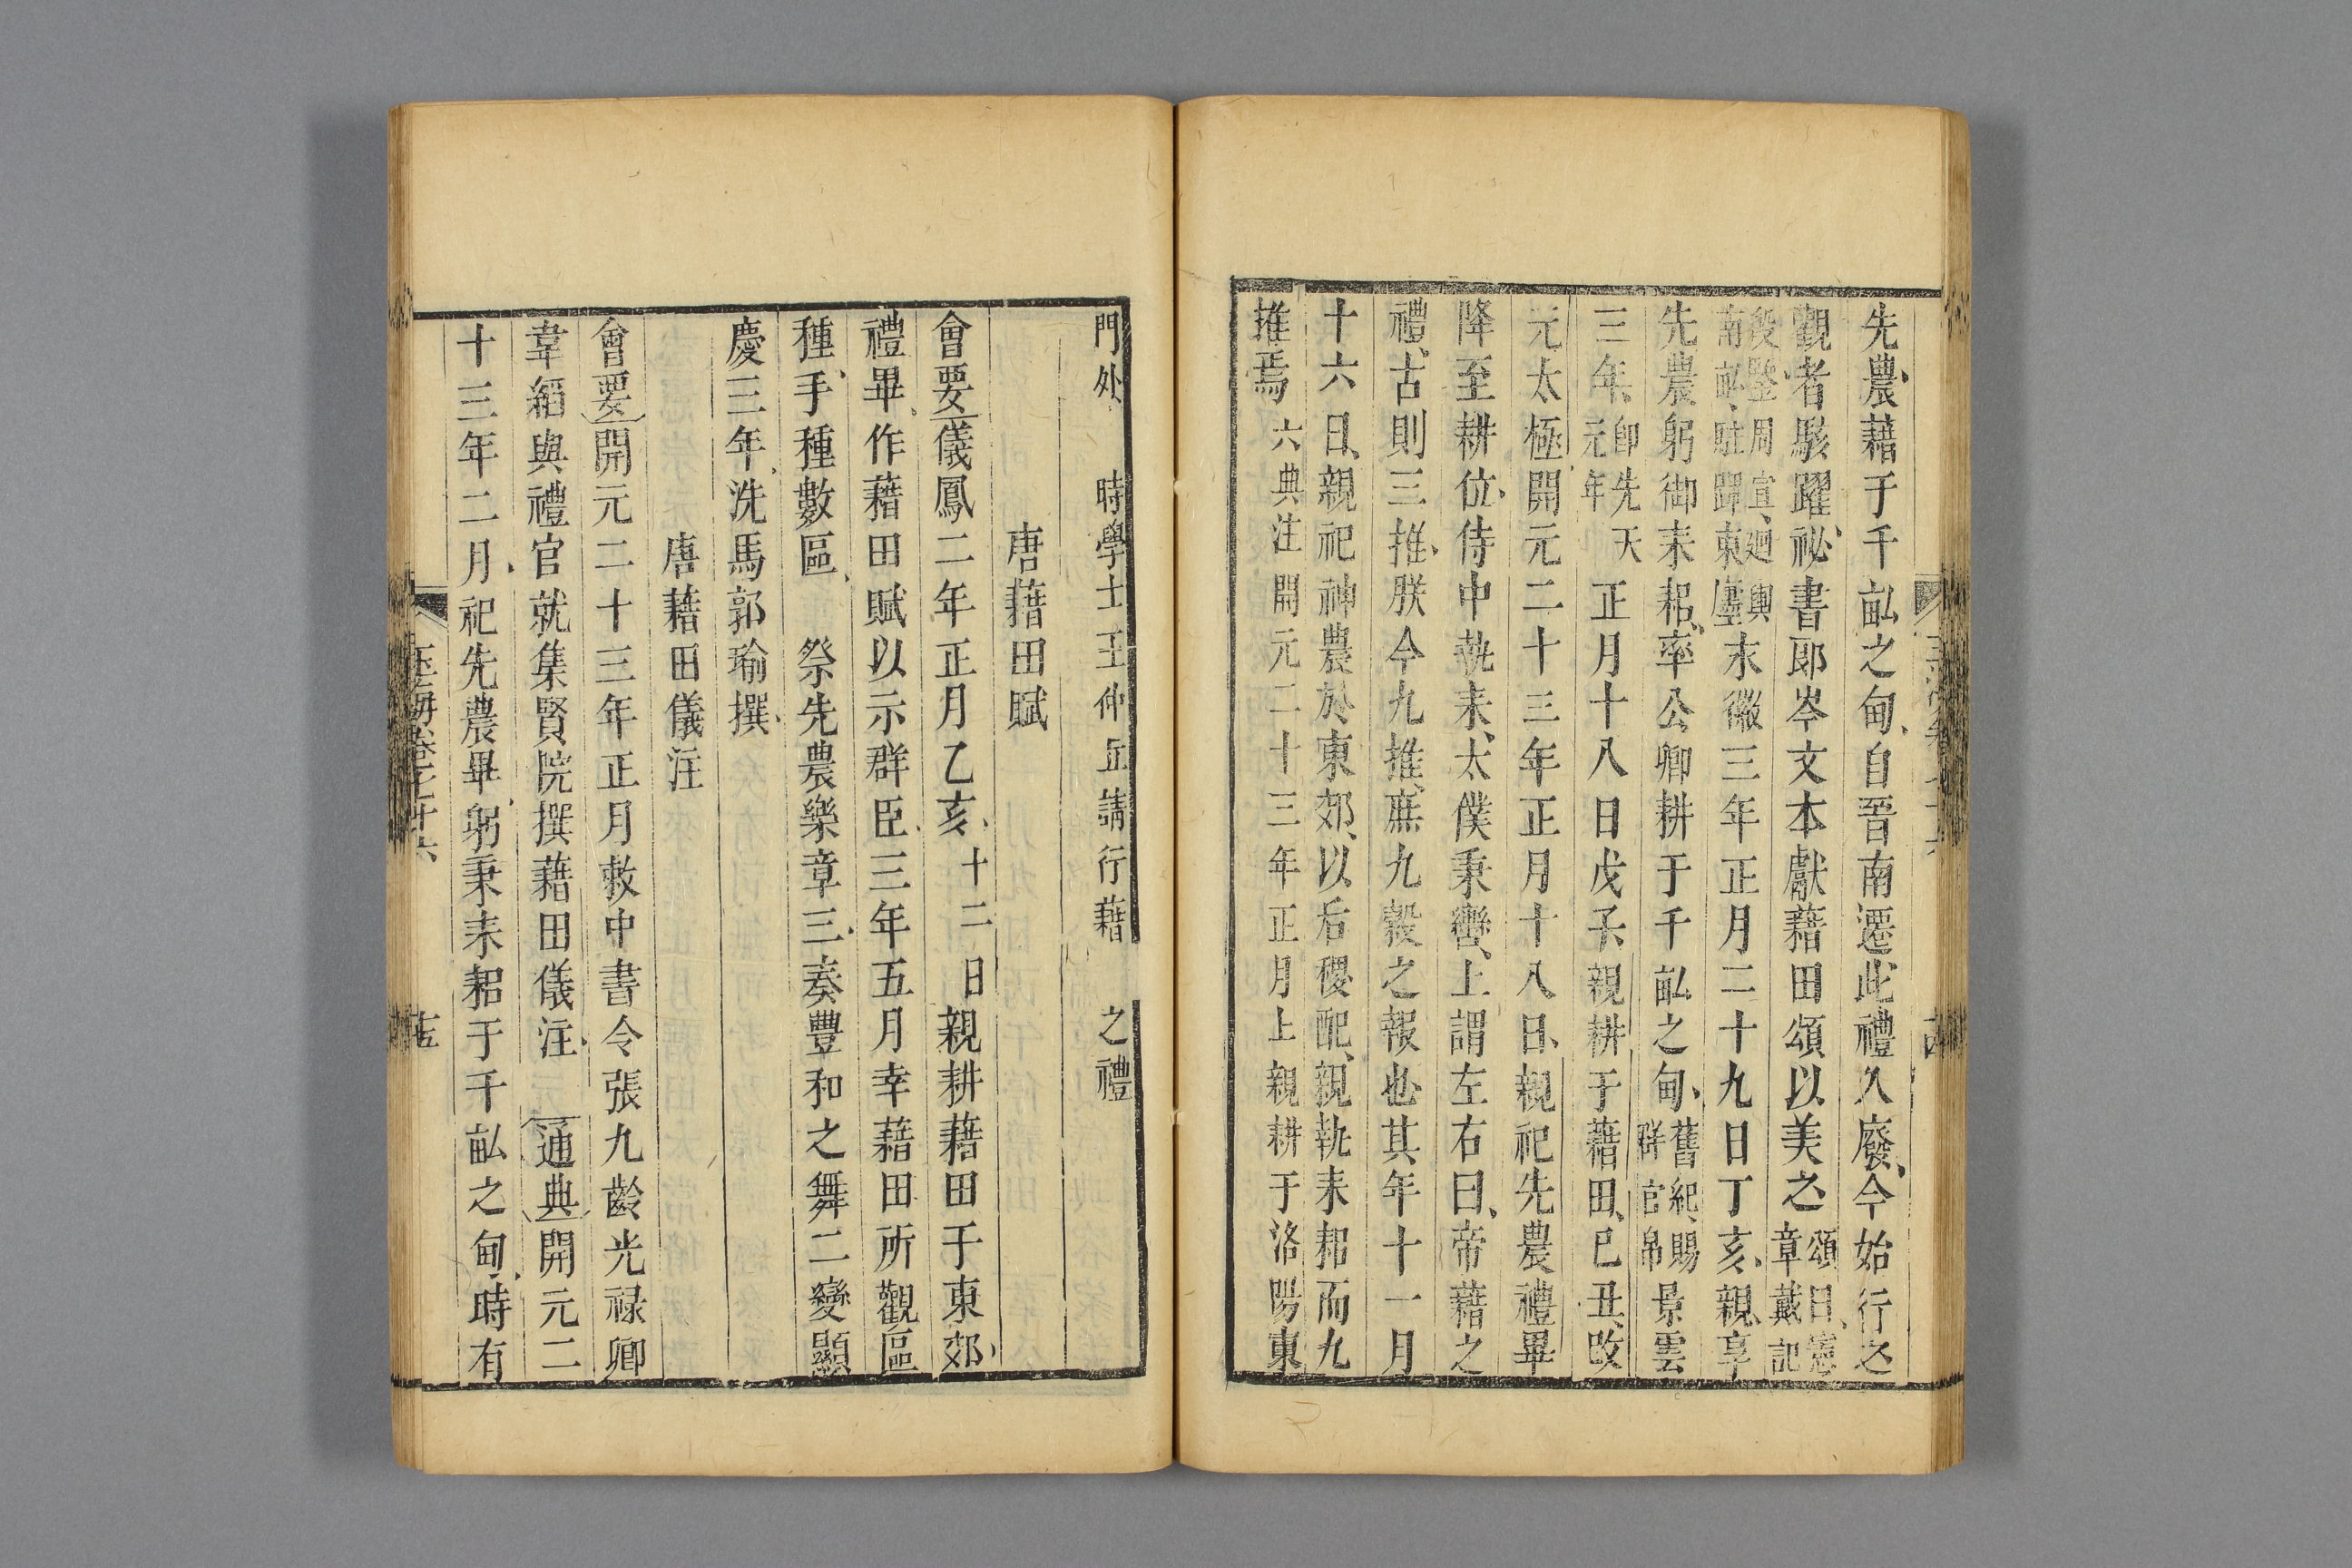 先農、藉于千畝之甸、自晉南遷、此禮久廢、今始行之
觀者駭躍、祕書郎岑文本獻藉田頌以美之頌曰、憲章戴記
段墾周宣、廻輿南畝、駐蹕東廛永徽三年正月二十九日丁亥、親享
先農躬御耒耜、率公卿耕于千畝之甸、舊紀、賜群官帛景雲
三年、卽先天元年正月十八日戊子親耕于藉田、已丑、改
元太極開元二十三年正月十八日、親祀先農禮畢
降至耕位、侍中執耒、太僕秉轡、上謂左右曰、帝藉之
禮、古則三推、朕今九推、庶九穀之報也其年十一月
十六日、親祀神農於東郊、以后稷配、親執耒耜而九
推焉六典注開元二十三年正月上親耕于洛陽東
門外 時學士王仲丘請行藉 之禮
唐藉田賦
會要儀鳳二年正月乙亥、十二日親耕藉田于東郊、
禮畢、作藉田賦以示群臣、三年五月幸藉田所觀區
種、手種數區、 祭先農樂章三、奏豐和之舞二變顯
慶三年、洗馬郭瑜撰、
唐藉田儀注
會要開元二十三年正月敕中書令張九齡光祿卿
韋縚與禮官就集賢院撰藉田儀注、 通典開元二
十三年二月、祀先農畢、躬秉耒耜于千畝之甸、時有
玉海卷七十六
十五